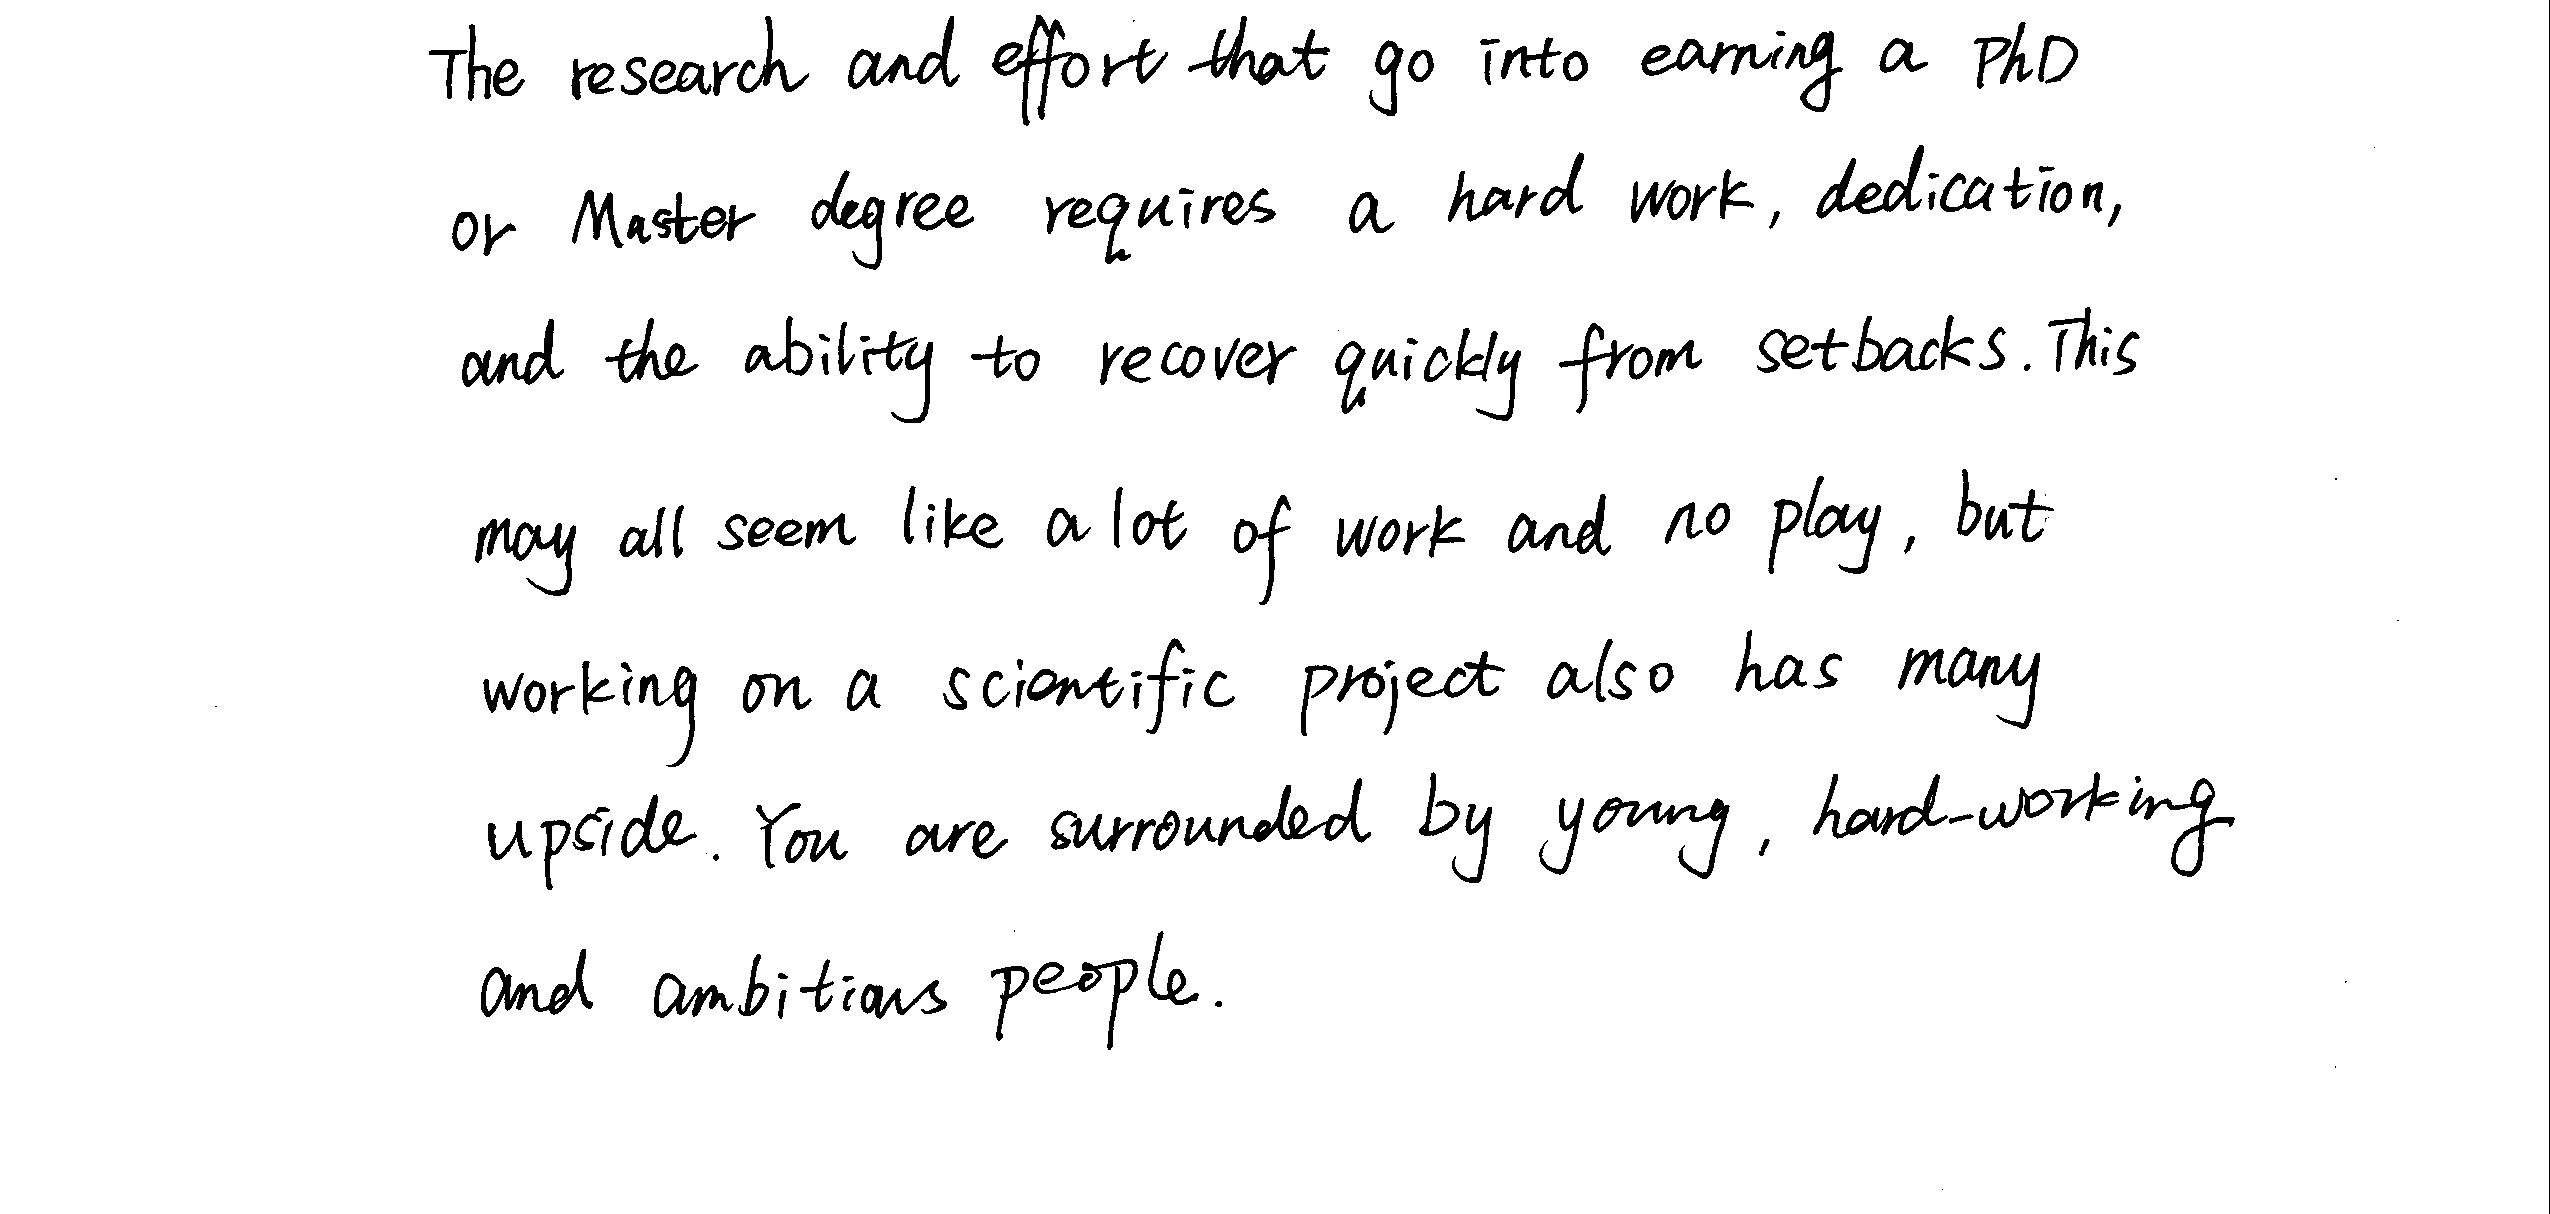 The research and effort that go into earning a PhD
or Master degree requires a hard work, dedication,
and the ability to recover quickly from setbacks. This
may all seem like a lot of work and no play, but
working on a scientific project also has many
upside. You are surrounded by young, hard-working
and ambitious people.